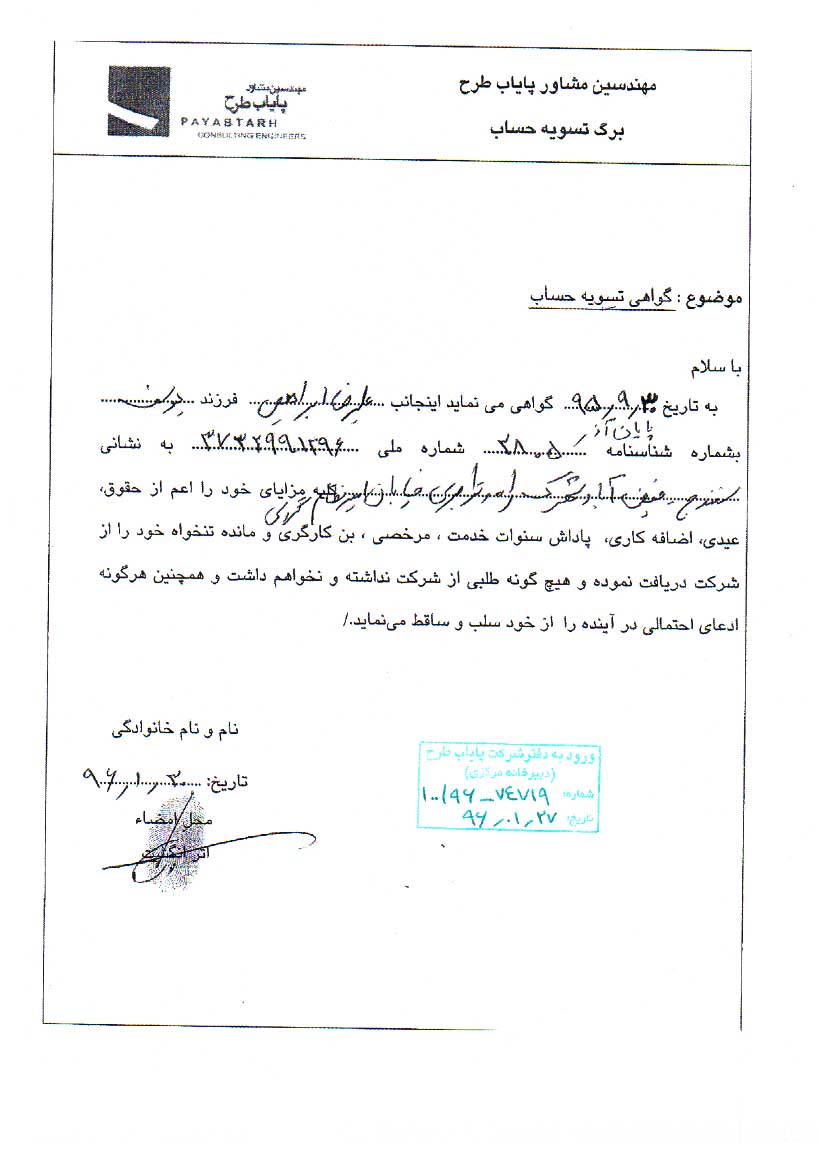 مهندسین مشاور پایاب طرح
برگ تسویه حساب
مهندسین مشاور
پایاب طرح
PAYABTARH
CONSULTING ENGINEERS
موضوع : گواهی تسویه حساب
با سلام
به تاریخ ۹۵/۹/۳۰ گواهی می نماید اینجانب علیرضا ابراهیمی فرزند یوسف
پایان آذر
بشماره شناسنامه ۲۸۰۵ شماره ملی ۳۷۳۲۹۹۱۲۹۶ به نشانی
سنندج خیابان کلیه مزایای خود را اعم از حقوق،
عیدی، اضافه کاری، پاداش سنوات خدمت ، مرخصی ، بن کارگری و مانده تنخواه خود را از
شرکت دریافت نموده و هیچ گونه طلبی از شرکت نداشته و نخواهم داشت و همچنین هرگونه
ادعای احتمالی در آینده را از خود سلب و ساقط می‌نماید./
نام و نام خانوادگی
تاریخ: ۹۶/۱/۳۰
محل امضاء
اثر انگشت
ورود به دفتر شرکت پایاب طرح
(دبیرخانه مرکزی)
شماره: ۱۰۰/۹۶-۷۴۷۱۹
تاریخ: ۹۶/۰۱/۲۷